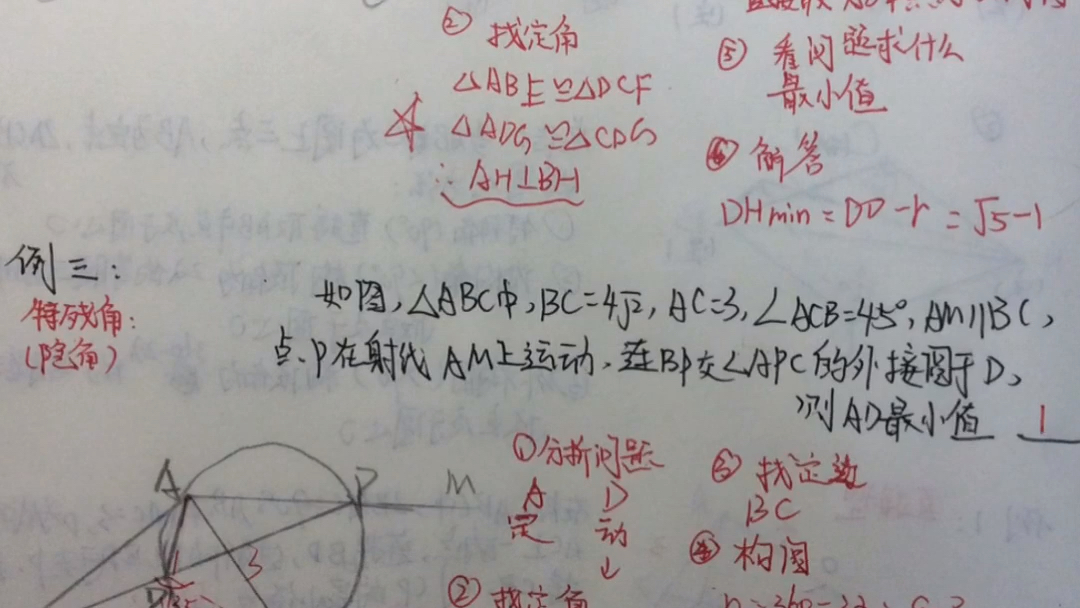 ② 找定角
△ABE≌△DCF
☆ △ADG≌△CDG
∴ AH⊥BH
⑤ 看问题求什么
最小值
⑥ 解答
DHmin = DO - r = √5-1
例三:
特殊角:
(隐角)
如图,△ABC中,BC=4√2,AC=3,∠ACB=45°,AM∥BC,
点P在射线AM上运动,连BP交∠APC的外接圆于D,
则AD最小值 1
①分析问题
A D
定 动
↓
② 找定角
③ 找定边
BC
④ 构圆
A P M
D 3
135°